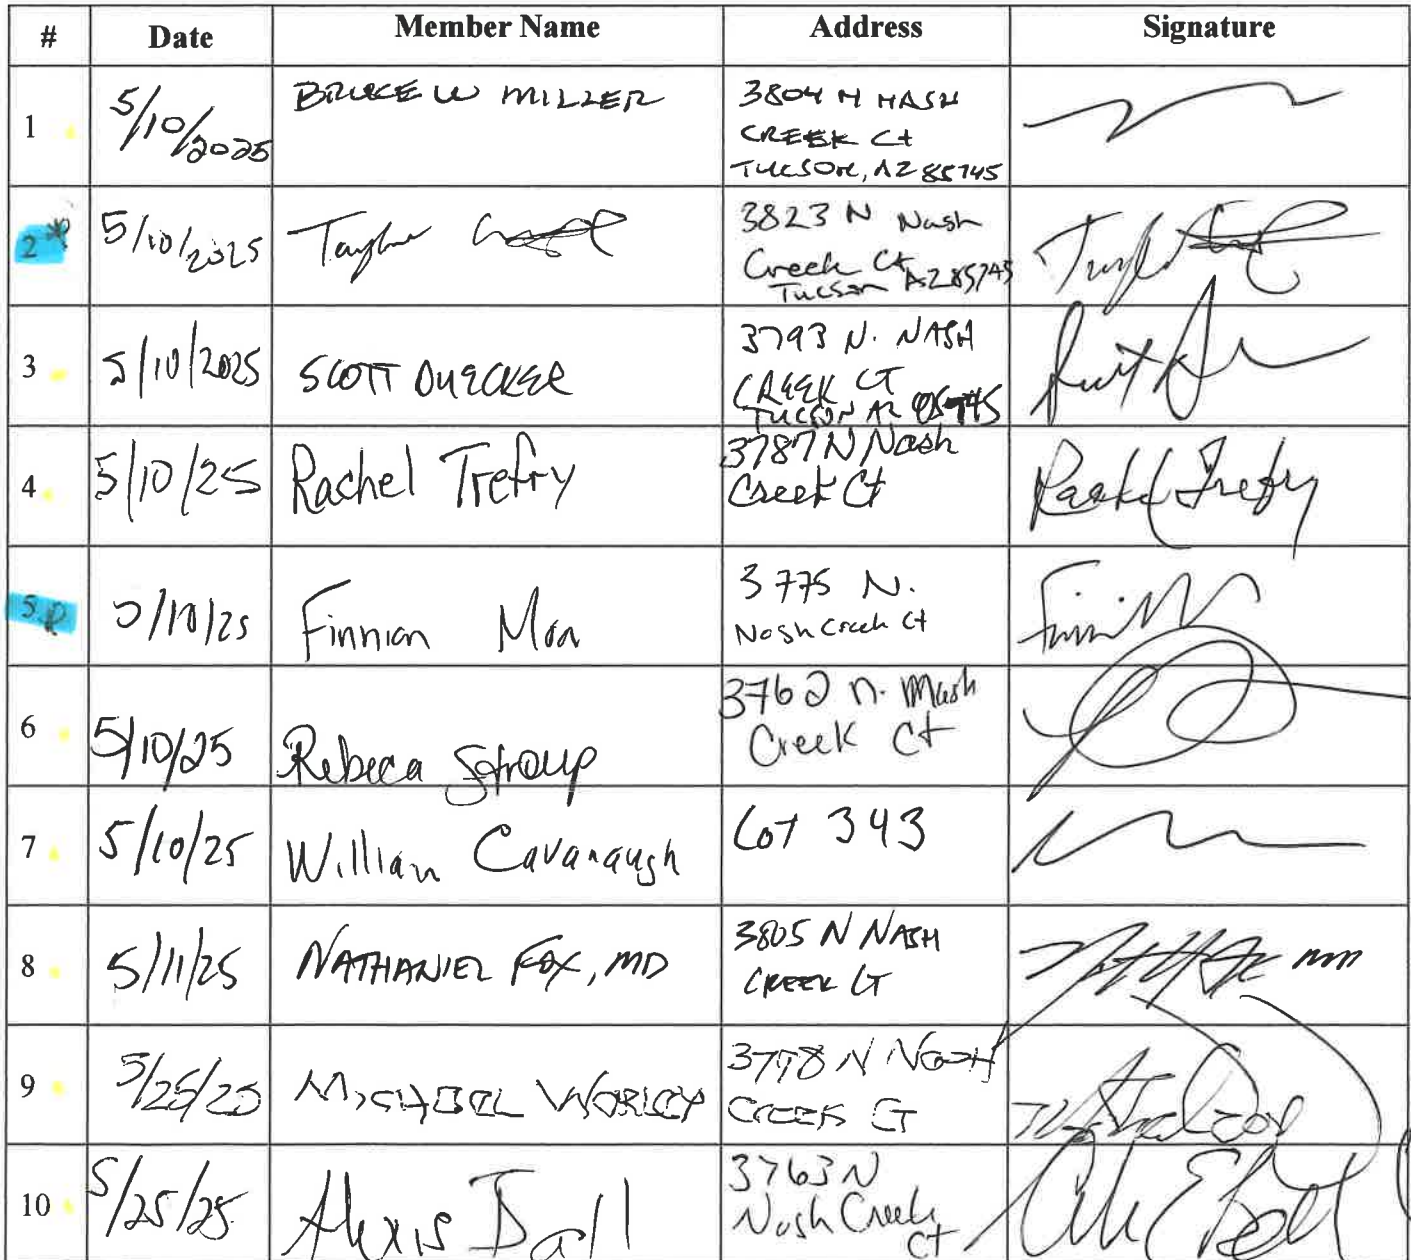 # Date Member Name Address Signature
1 5/10/2025 BRUCE W MILLER 3804 N NASH
CREEK Ct
TUCSON, AZ 85745
2 5/10/2025 Taylor 3823 N Nash
Creek Ct
Tucson AZ 85745
3 5/10/2025 SCOTT DUECKER 3793 N. NASH
CREEK CT
TUCSON AZ 85745
4 5/10/25 Rachel Trefry 3787 N Nash
Creek Ct
Rachel Trefry
5 5/10/25 Finnian 3775 N.
Nash Creek Ct
6 5/10/25 Rebeca Stroup 3762 N. Nash
Creek Ct
7 5/10/25 William Cavanaugh Lot 343
8 5/11/25 NATHANIEL FOX, MD 3805 N NASH
CREEK CT
9 5/25/25 MICHAEL WORLEY 3778 N NASH
CREEK CT
10 5/25/25 Alexis Ball 3763 N
Nash Creek
Ct